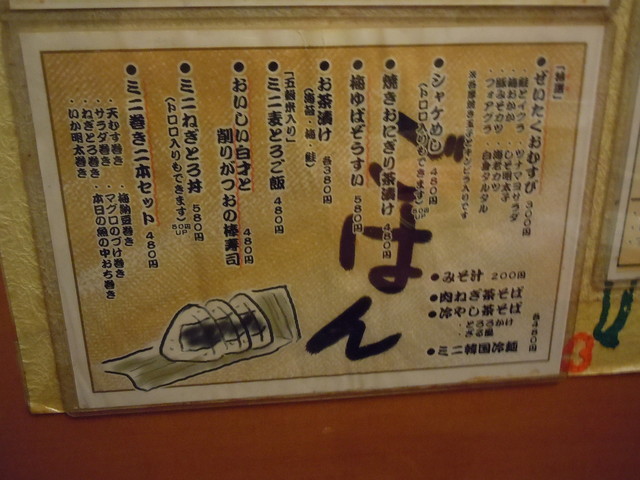 ごはん
「特選」
●ぜいたくおむすび 300円
・鮭とイクラ ・ツナマヨサラダ
・梅おかか ・しそ明太子
・豚みそカツ ・海老カツ
・フォアグラ ・白身タルタル
※各厚焼き玉子とキンピラ入りです
●シャケめし 480円
(トロロ入りもできます)50円UP
●焼きおにぎり茶漬け 480円
●梅ゆばぞうすい 580円
●お茶漬け 各380円
(海苔・梅・鮭)
「五穀米入り」
●ミニ麦とろご飯 480円
●おいしい白才と
削りがつおの棒寿司 480円
●ミニねぎとろ丼 580円
(トロロ入りもできます)50円UP
●ミニ巻き二本セット 480円
・天むす巻き ・梅納豆巻き
・サラダ巻き ・マグロのづけ巻き
・ねぎとろ巻き ・本日の魚の中おち巻き
・いか明太巻き
●みそ汁 200円
●肉ねぎ茶そば
●冷やし茶そば
●ミニ韓国冷麺
各480円